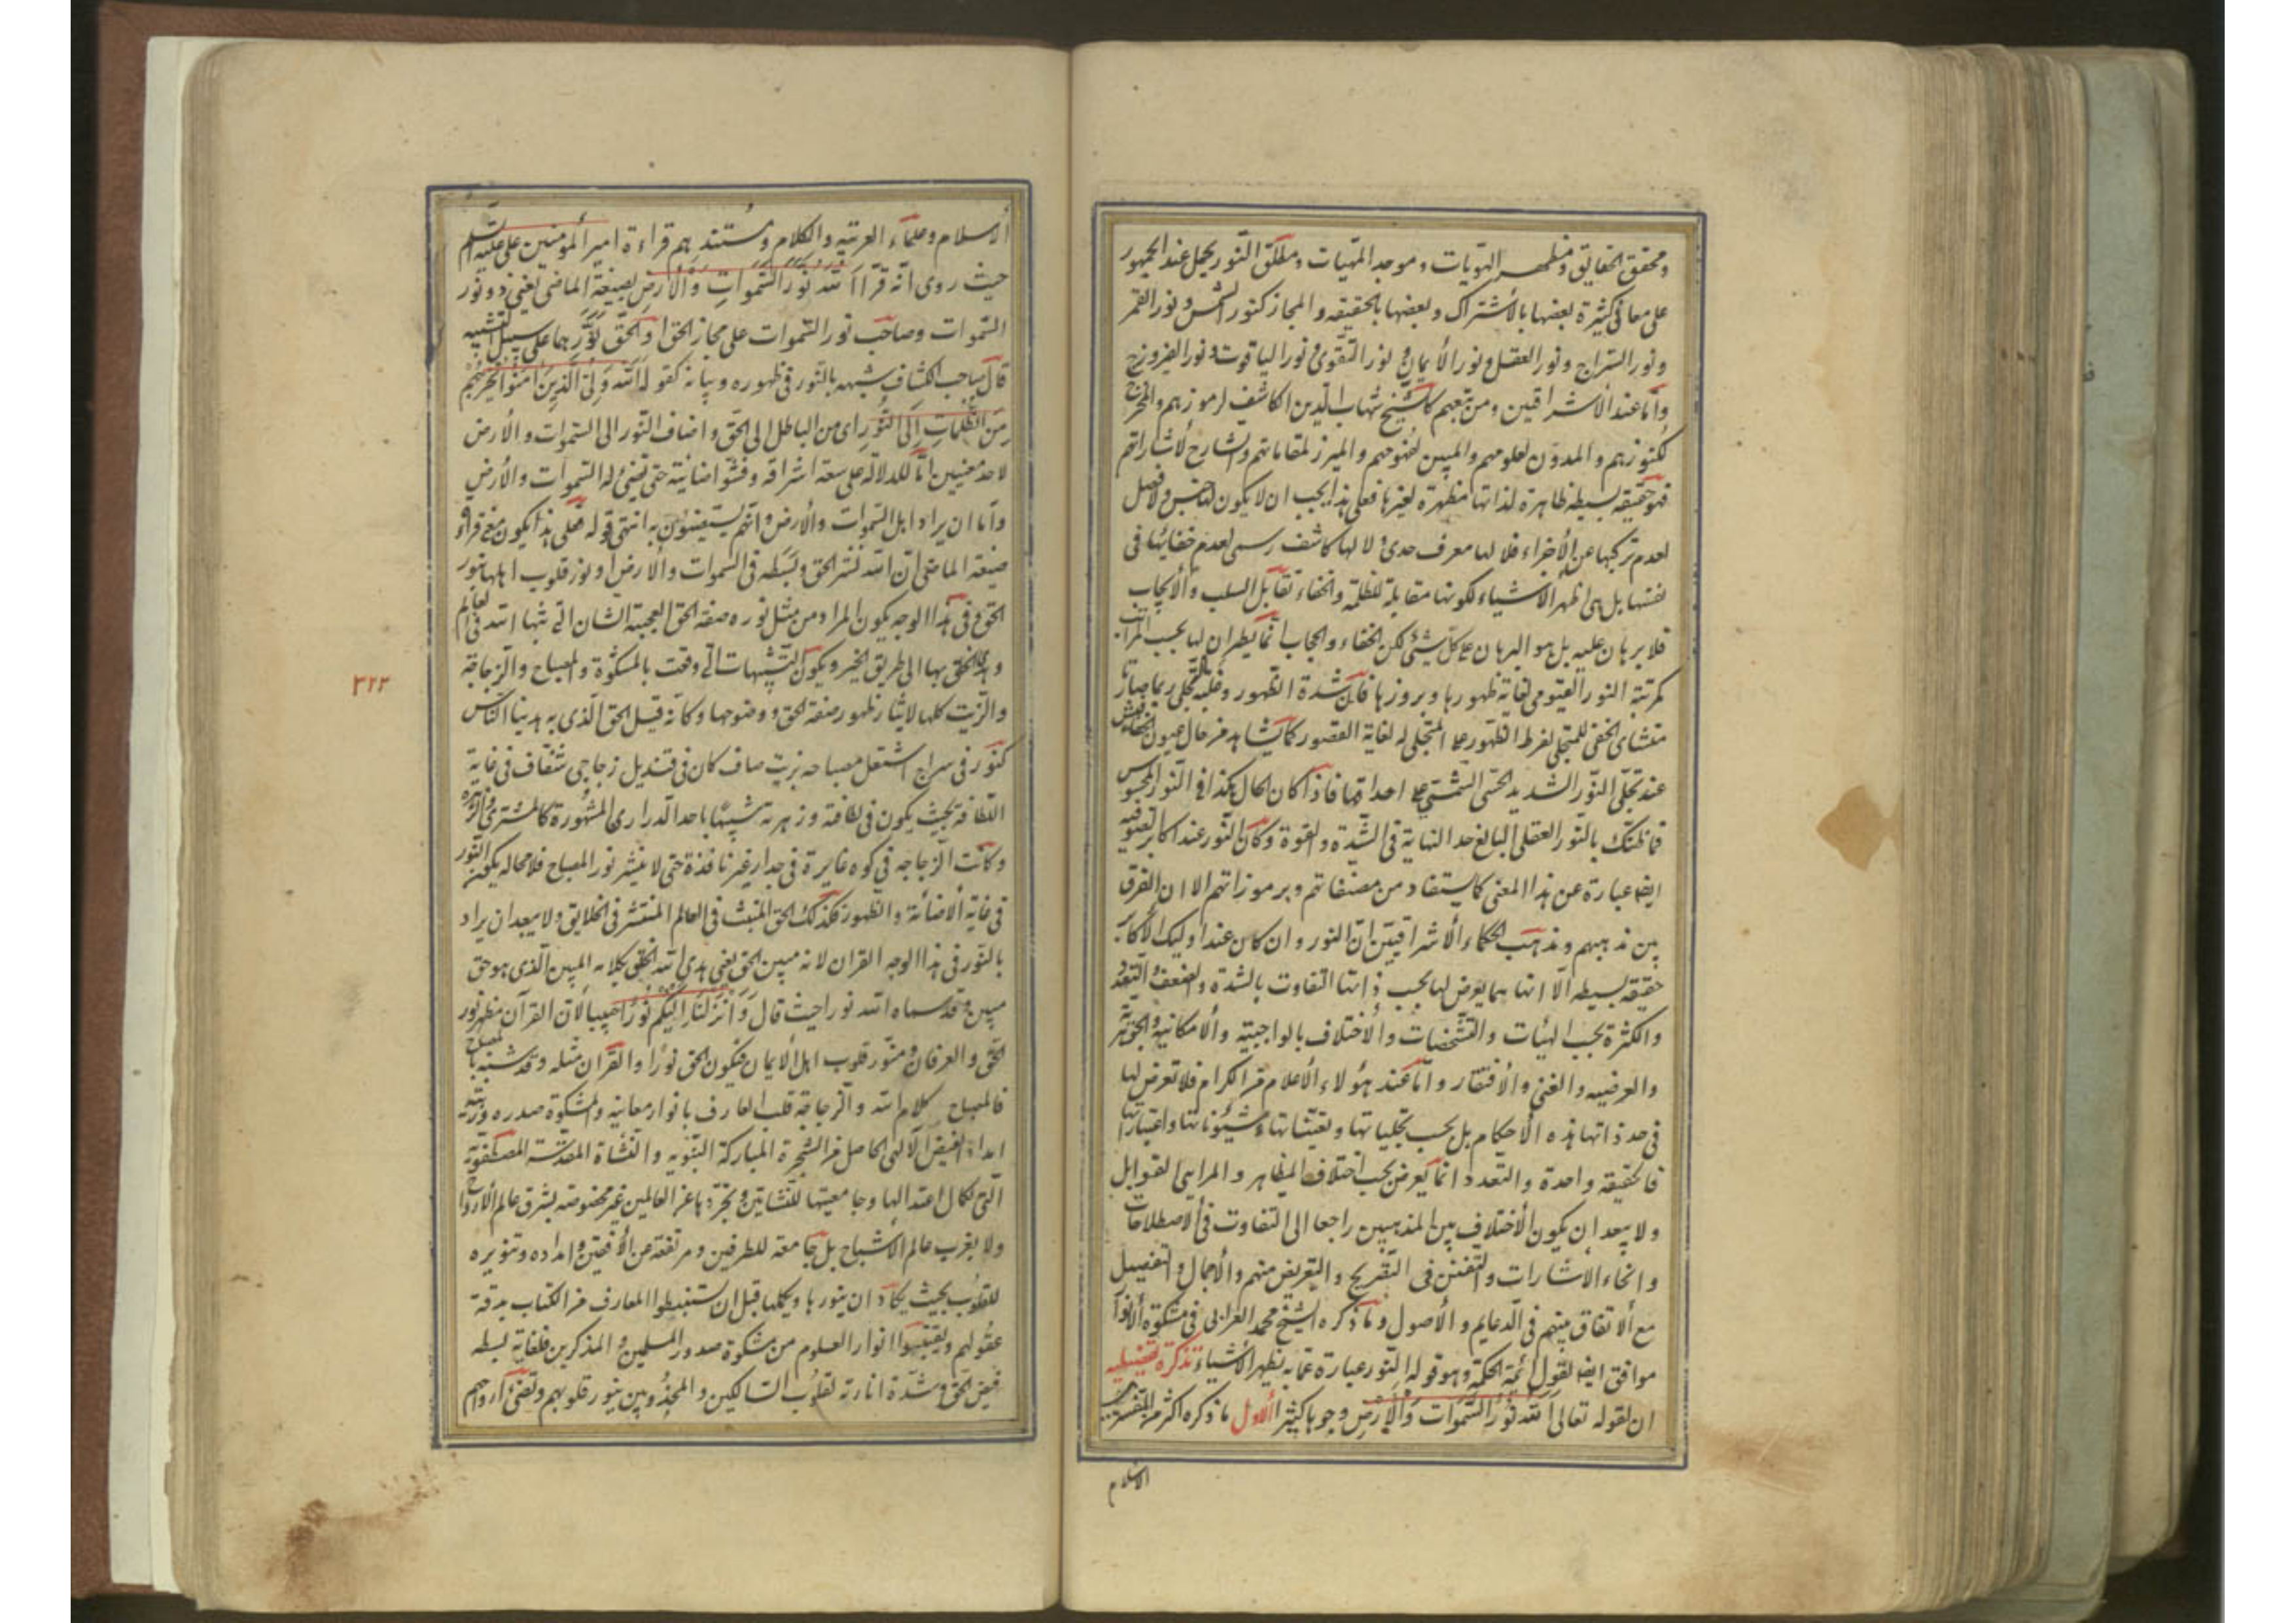 ومحقق الحقایق ومظهر الهویات وموجد المهیات ومطلق النور یحمل عند الجمهور
علی معانی کثیرة بعضها بالاشتراک وبعضها بالحقیقه والمجاز کنور الشمس ونور القمر
ونور السراج ونور العقل ونور الایمان ونور التقوی ونور الیاقوت ونور الفیروزج
وامّا عند الاشراقیین ومن تبعهم کالشیخ شهاب الدین الکاشف لرموزهم والمخرج
لکنوزهم والمدوّن لعلومهم والمبین لفهومهم والممیز لمقاماتهم والشارح لاشاراتهم
فهو حقیقه بسیطه ظاهرة لذاتها مظهرة لغیرها فعلی هذا یجب ان لا یکون لها جنس ولا فصل
لعدم ترکبها عن الأجزاء فلا لها معرف حدی ولا لها کاشف رسمی لعدم خفائها فی
نفسها بل هی اظهر الاشیاء لکونها مقابلة للظلمة والخفاء تقابل السلب والایجاب
فلا برهان علیه بل هو البرهان علی کل شیئ لکن الخفاء والحجاب انّما یطرأن لها بحسب المراتب
کمرتبة النور القیّومی لغایة ظهورها وبروزها فان شدة الظهور وغلبة التجلی ربما صارتا
منشأی الخفی للمتجلی لفرط الظهور علی المتجلی له لغایة القصور کما یشاهد من حال عیون الخفافیش
عند تجلّی النّور الشدید الحسّی الشمسی علی احداقها فاذا کان الحال هکذا فی النور المحسوس
فما ظنّک بالنّور العقلی البالغ حد النهایة فی الشّدة والقوة وکان النّور عند اکابر الصوفیه
ایضا عبارة عن هذا المعنی کما یستفاد من مصنفاتهم وبرموزاتهم الا ان الفرق
بین مذهبهم ومذهب الحکماء الاشراقیین انّ النور وان کان عند اولیک الاکابر
حقیقه بسیطه الّا انها مما یعرض لها بحسب ذاتها التفاوت بالشدة والضعف والتعدّد
والکثرة بحسب الهیٔات والتشخصات والاختلاف بالواجبیة والامکانیة والجوهریّة
والعرضیه والغنی والافتقار وامّا عند هؤلاء الأعلام من الکرام فلا تعرض لها
فی حد ذاتها هذه الاحکام بل بحسب تجلیاتها وتعیناتها وشئوناتها واعتباراتها
فالحقیقه واحدة والتعدد انما یعرض بحسب اختلاف المظاهر والمرایی القوابل
ولا یبعد ان یکون الاختلاف بین المذهبین راجعا الی التفاوت فی الاصطلاحات
وانحاء الاشارات والتفنن فی التصریح والتعریض منهم والاجمال والتفصیل
مع الاتفاق منهم فی الدعایم والاصول وما ذکره الشیخ محمد الغزالی فی مشکوة الانوار
موافق ایضا لقول ائمة الحکمة وهو قوله النور عبارة عمّا به یظهر الاشیاء تذکرة
ان لقوله تعالی اَللّهُ نُورُ السَّمَواتِ وَالْاَرْضِ وجوها کثیرا الاول ما ذکره اکثر من المفسرین
الاسلام
الاسلام وعلماء العربیّه والکلام ومستندهم قراءة امیر المؤمنین علی علیه السّلم
حیث روی انّه قرأ اَللّه نَوَّرَ السَّمَواتِ وَالْاَرْضَ بصیغة الماضی یعنی ذو نور
السّموات وصاحب نور السّموات علی مجاز الحق او الحق نَوَّرهما علی سبیل التشبیه
قال صاحب الکشاف شبهه بالنّور فی ظهوره وبیانه کقوله اَللّه وَلِیُّ الَّذِینَ آمَنُوا یُخْرِجُهُمْ
مِنَ الظُّلُماتِ اِلَی النُّورِ ای من الباطل الی الحقّ واضاف النّور الی السّموات والارض
لاحد معنیین امّا للدلالة علی سعة اشراقه وفشوّ اضائیّة حتی تضئ له السّموات والارض
وامّا ان یراد اهل السّموات والارض وانّهم یستضیئون به انتهی قوله فعلی هذا یکون معنی قراءة
صیغة الماضی انّ اللّه نشر الحق وبسطه فی السموات والارض او نوّر قلوب اهلها بنور
الحق وفی هذا الوجه یکون المراد من مثل نوره صفة الحق العجیبة الشان الّتی بثها اللّه فی العالم
وهدی الخلق بها الی طریق الخیر ویکون التشبیهات الّتی وقعت بالمشکوة والمصباح والزجاجة
والزّیت کلها لایثار ظهور صفة الحق ووضوحها وکانّه قیل الحق الذی به هدینا النّاس
کنور فی سراج اشتعل مصباحه بزیت صاف کان فی قندیل زجاجی شفاف فی غایة
اللطافة بحیث یکون فی لطافته وزهرته شبیهًا باحد الدّراری المشهورة کالمشتری والزهره
وکانت الزّجاجه فی کوه غایرة فی جدار غیر نافذة حتی لا ینتشر نور المصباح فلا محاله یکون النّور
فی غایة الاضائة والظهور فکذلک الحق المنبث فی العالم المنتشر فی الخلایق ولا یبعد ان یراد
بالنّور فی هذا الوجه القران لانه مبین الحق یعنی هدی اللّه الخلق بکلامه المبین الّذی هو حق
مبین وقد سماه اللّه نورا حیث قال وَاَنْزَلْنا اِلَیْکُمْ نُورًا مُبینًا لانّ القرآن مظهر نور
الحقّ والعرفان ومنوّر قلوب اهل الایمان فیکون الحق نورًا والقران مثله وقد شبّه بالمصباح
فالمصباح کلام اللّه والزجاجة قلب العارف بانوار معانیه والمشکوة صدره وزیته
امداد الفیض الالهی الحاصل من الشجرة المبارکة النّبویه والنّشأة المقدّسة المصطفویة
الّتی لکمال اعتدالها وجامعیتها للنشأتین وتجرّدها عن العالمین غیر مخصوصة بشرق عالم الارواح
ولا بغرب عالم الاشباح بل جامعة للطرفین ومرتفعة عن الأفقین وامداده وتنویره
للقلوب بحیث یکاد ان ینورها ویکملها قبل ان یستنبطوا المعارف من الکتاب بدقة
عقولهم ویقتبسوا انوار العلوم من مشکوة صدور المسلمین والمذکرین فلغایة بسطه
فیض الحق وشدّة انارته لقلوب السّالکین والمجذوبین ینور قلوبهم وتضئ ارواحهم
٣٢٢